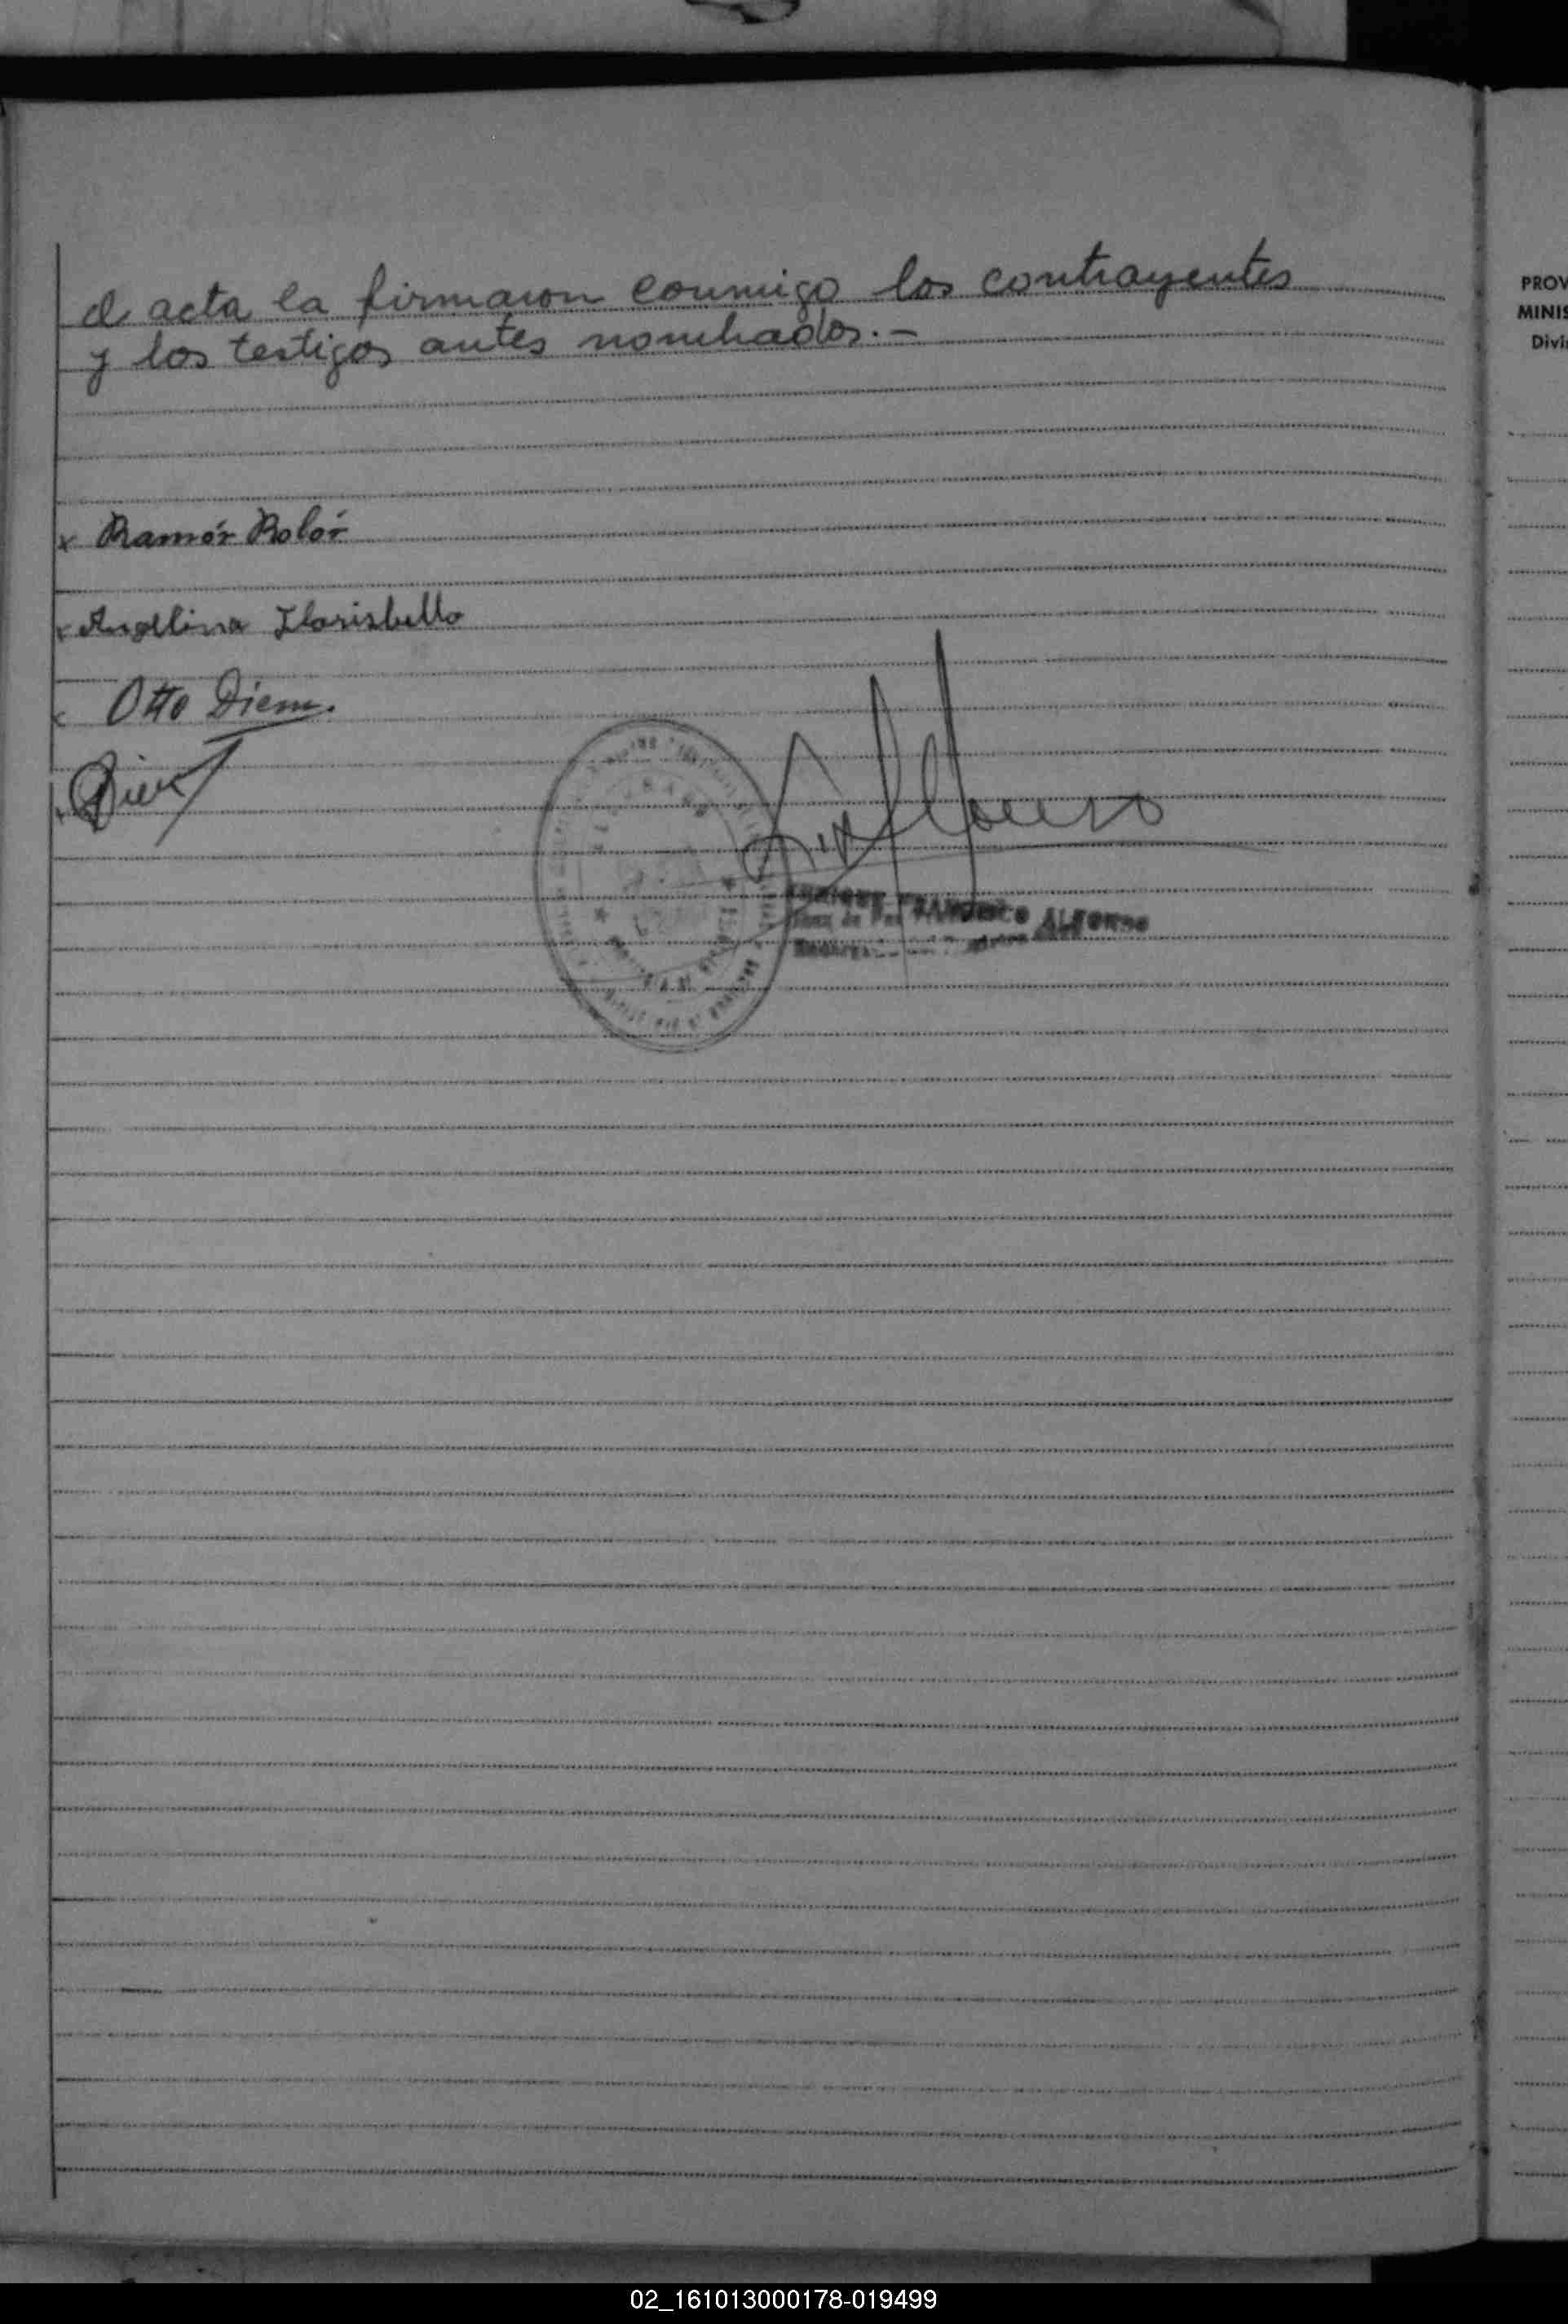 el acta la firmaron conmigo los contrayentes
y los testigos antes nombrados.-
x Ramón Rolón
x Angelina Florisbello
x Otto Diem.
x Diem
ENRIQUE FRANCISCO ALFONSO
Juez de Paz
PROV
MINIS
Divi
02_161013000178-019499